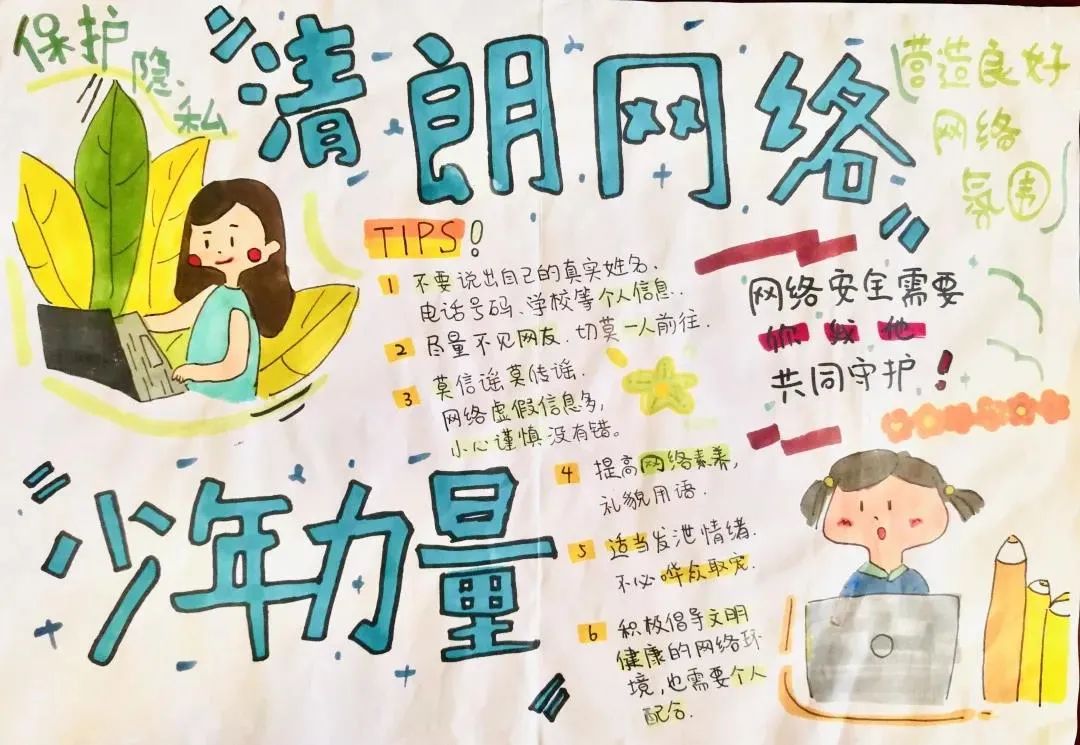 保护隐私
清朗网络
营造良好
网络
氛围
TIPS!
1 不要说出自己的真实姓名、
电话号码、学校等个人信息.
2 尽量不见网友.切莫一人前往.
3 莫信谣莫传谣.
网络虚假信息多,
小心谨慎没有错。
网络安全需要
你 我 他
共同守护!
少年力量
4 提高网络素养,
礼貌用语.
5 适当发泄情绪.
不必哗众取宠.
6 积极倡导文明
健康的网络环
境,也需要个人
配合.